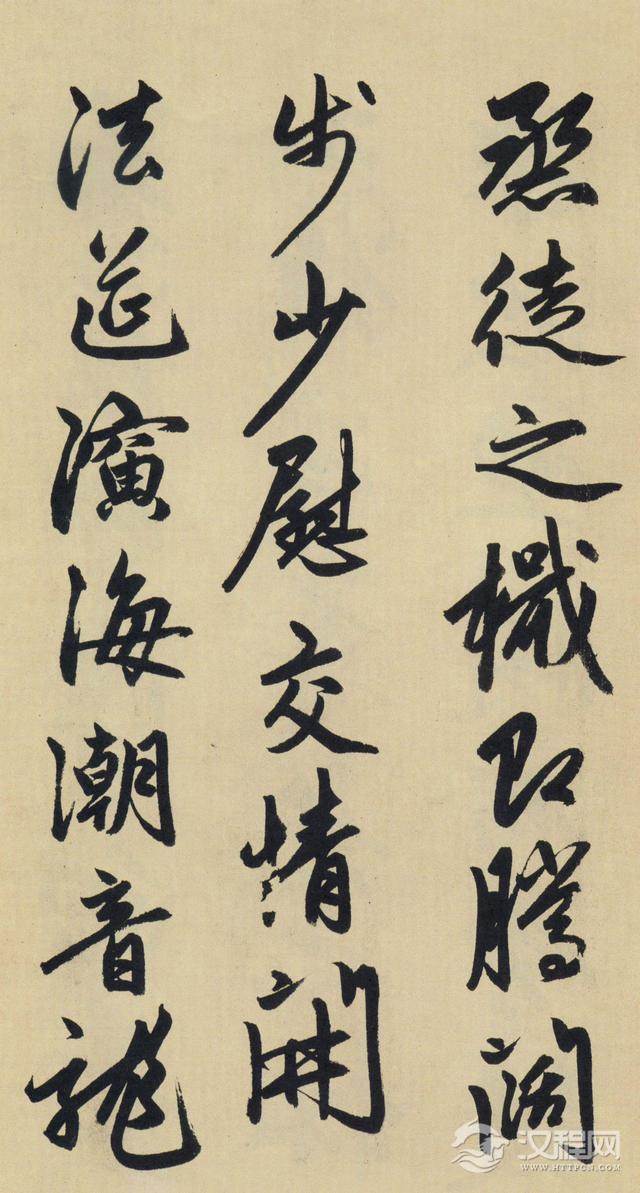 烝徒之檝即騰闊
步少慰交情開
法筵演海潮音龍
汉程网
WWW.HTTPCN.COM